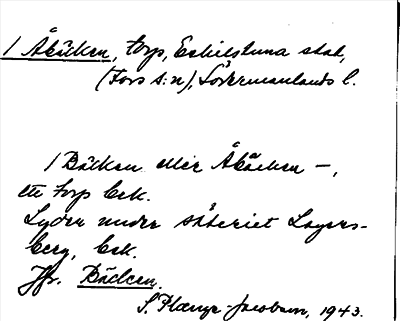 / Åbäcken, torp, Eskilstuna stad,
(Fors s:n), Södermanlands l.
/ Bäcken eller Åbäcken –,
ett torp bek.
Lyder under säteriet Lagers-
berg, bek.
Jfr. Bäcken.
S. Plænge-Jacobson, 1943.